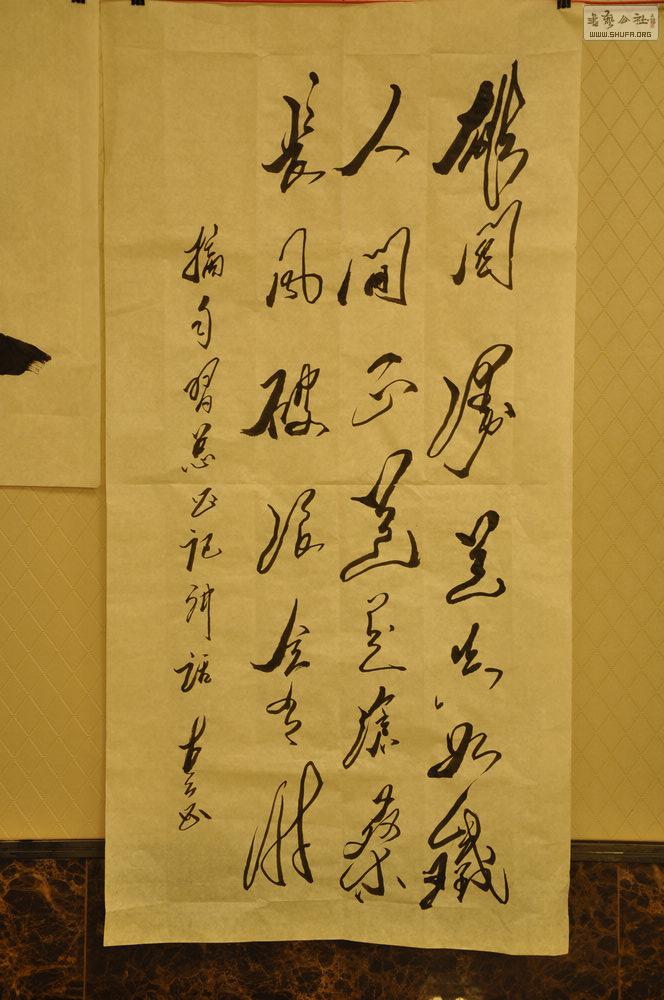 雄関漫道真如鐵
人间正道是滄桑
長风破浪会有时
摘句習总书记讲话
书藝公社
WWW.SHUFA.ORG